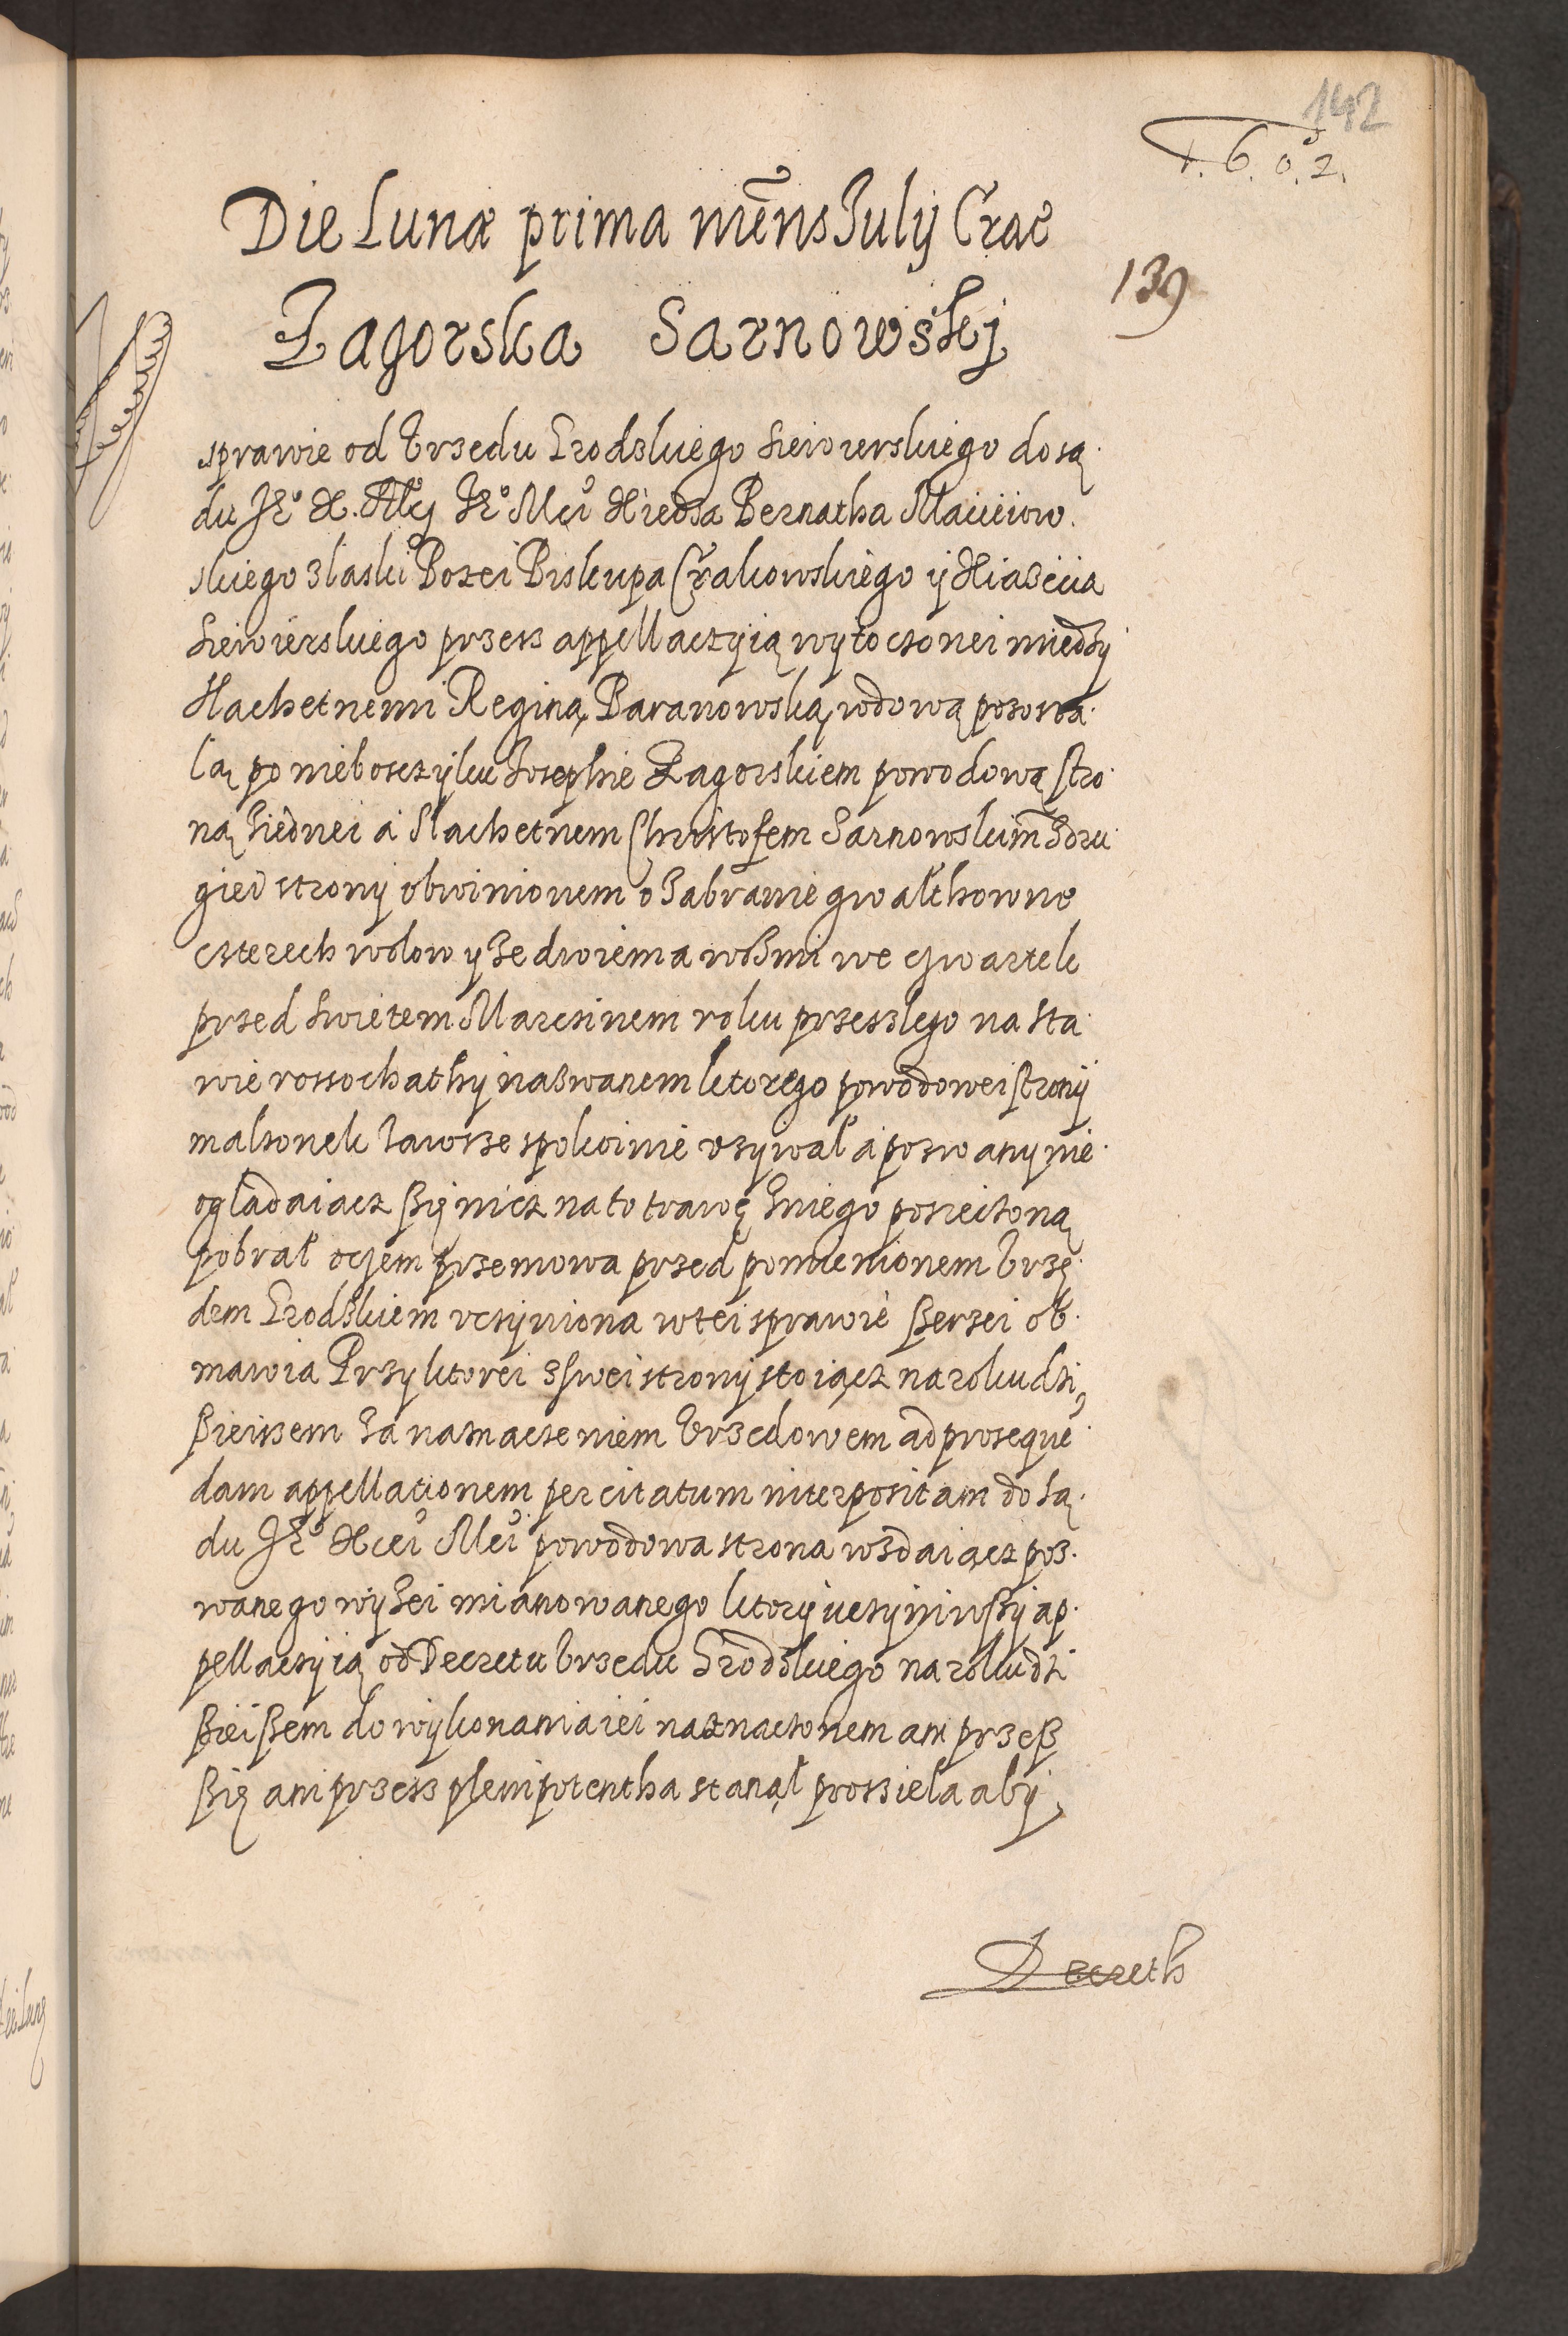 142
1.6.0.2.
Die Lunæ prima mēns Julij Crac
139
Zagorska Sarnowskj
W
sprawie od Vrzedu Grodzkiego Siewierskiego do są
du Je° X. M. Je° Mci Xiedza Bernatha Macieiow
skiego z laski Bozei Biskupa Crakowskiego ij Xiazecia
Siewierskiego przess appellaczyią wytoczonei miedzy
Slachetnemi Reginą Baranowską wdową pozosta
lą po nieboszczyku Josephie Zagorskiem powodową stro
ną ziednei a Slachetnem Christofem Sarnowskim̄ zdru
giei strony obwinionem o zabranie gwałthowne
czterech wolow y ze dwiema wozmi we czwartek
przed Swietem Marcinem roku przeszlego na sta
wie rossochathy nazwanem ktorego powodowei strony
malzonek zawsze spokoinie vzywał a pozwany nie
ogladaiacz się nicz na to trawę zniego posieczoną
pobrał oczem przemowa przed pomienionem Vrzę
dem Grodzkiem vczyniona wtei sprawie szerzei ob
mawia Przy ktorei zswei strony stoiącz na roku dzi
sieissem za naznaczeniem Vrzedowem ad prosequē
dam appellationem per citatum interpositam do Są
du Je° Xcei Mci powodowa strona wzdaiącz poz
wanego wyzei mianowanego ktory vczyniwszy ap
pellaczyią od Decretu Vrzedu Grodzkiego na roku dzi
sieiszem do wykonania iei naznaczonem ani przesz
się ani przess plenipotentha stanął prossiela aby
Decreth